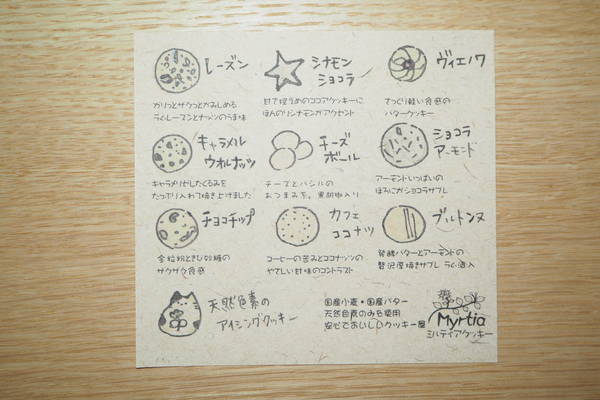 レーズン
カリッとサクっとかみしめる
ラムレーズンとナッツのうま味
シナモン
ショコラ
甘さ控えめのココアクッキーに
ほんのりシナモンがアクセント
ヴィエノワ
さっくり軽い食感の
バタークッキー
キャラメル
ウォルナッツ
キャラメリゼしたくるみを
たっぷり入れて焼き上げました
チーズ
ボール
チーズとバジルの
おつまみ系。黒胡椒入り
ショコラ
アーモンド
アーモンドいっぱいの
ほろにがショコラサブレ
チョコチップ
全粒粉ときび砂糖の
サクザク食感
カフェ
ココナッツ
コーヒーの苦みとココナッツの
やさしい甘味のコントラスト
ブルトンヌ
発酵バターとアーモンドの
贅沢厚焼きサブレ ラム酒入
天然色素の
アイシングクッキー
国産小麦・国産バター
天然色素のみを使用
安心でおいしいクッキー屋
Myrtia
ミルティアクッキー